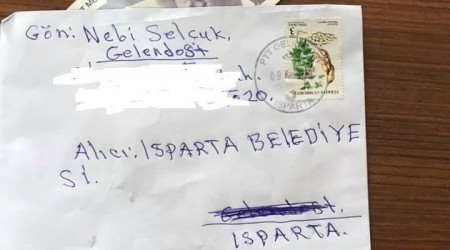 Gön: Nebi Selçuk,
Gelendost
h.
20.
PTT GE
ISPARTA
Alıcı: ISPARTA BELEDİYE
Sİ.
Gelendost.
ISPARTA.